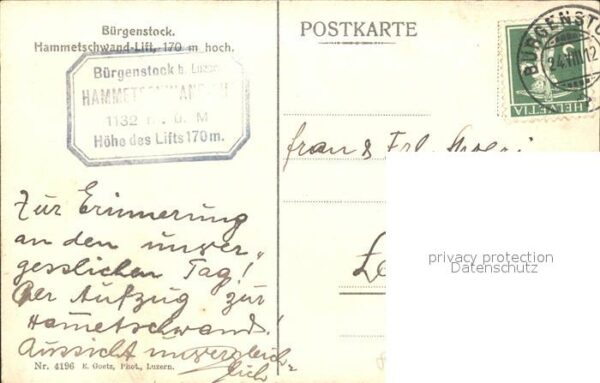 Bürgenstock.
Hammetschwand-Lift, 170 m hoch.
POSTKARTE
Bürgenstock b. Luzern
HAMMETSCHWAND
1132 M
Höhe des Lifts 170 m.
BÜRGENSTO
24.VIII.12
HELVETIA
5
Frau & Frl.
Zur Erinnerung
an den unver„
gesslichen Tag!
Der Aufzug zur
Hametschwand!
Aussicht unvergleich-
lich
privacy protection
Datenschutz
Nr. 4196 E. Goetz, Phot., Luzern.